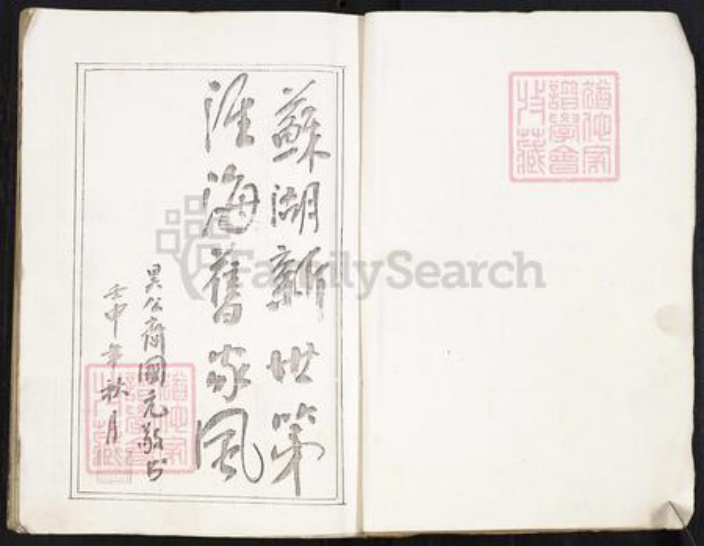 猶他家
譜學會
收藏
蘇湖新世第
淮海舊家風
公裔國元敬书
壬申年秋月
猶他家
譜學會
收藏
FamilySearch